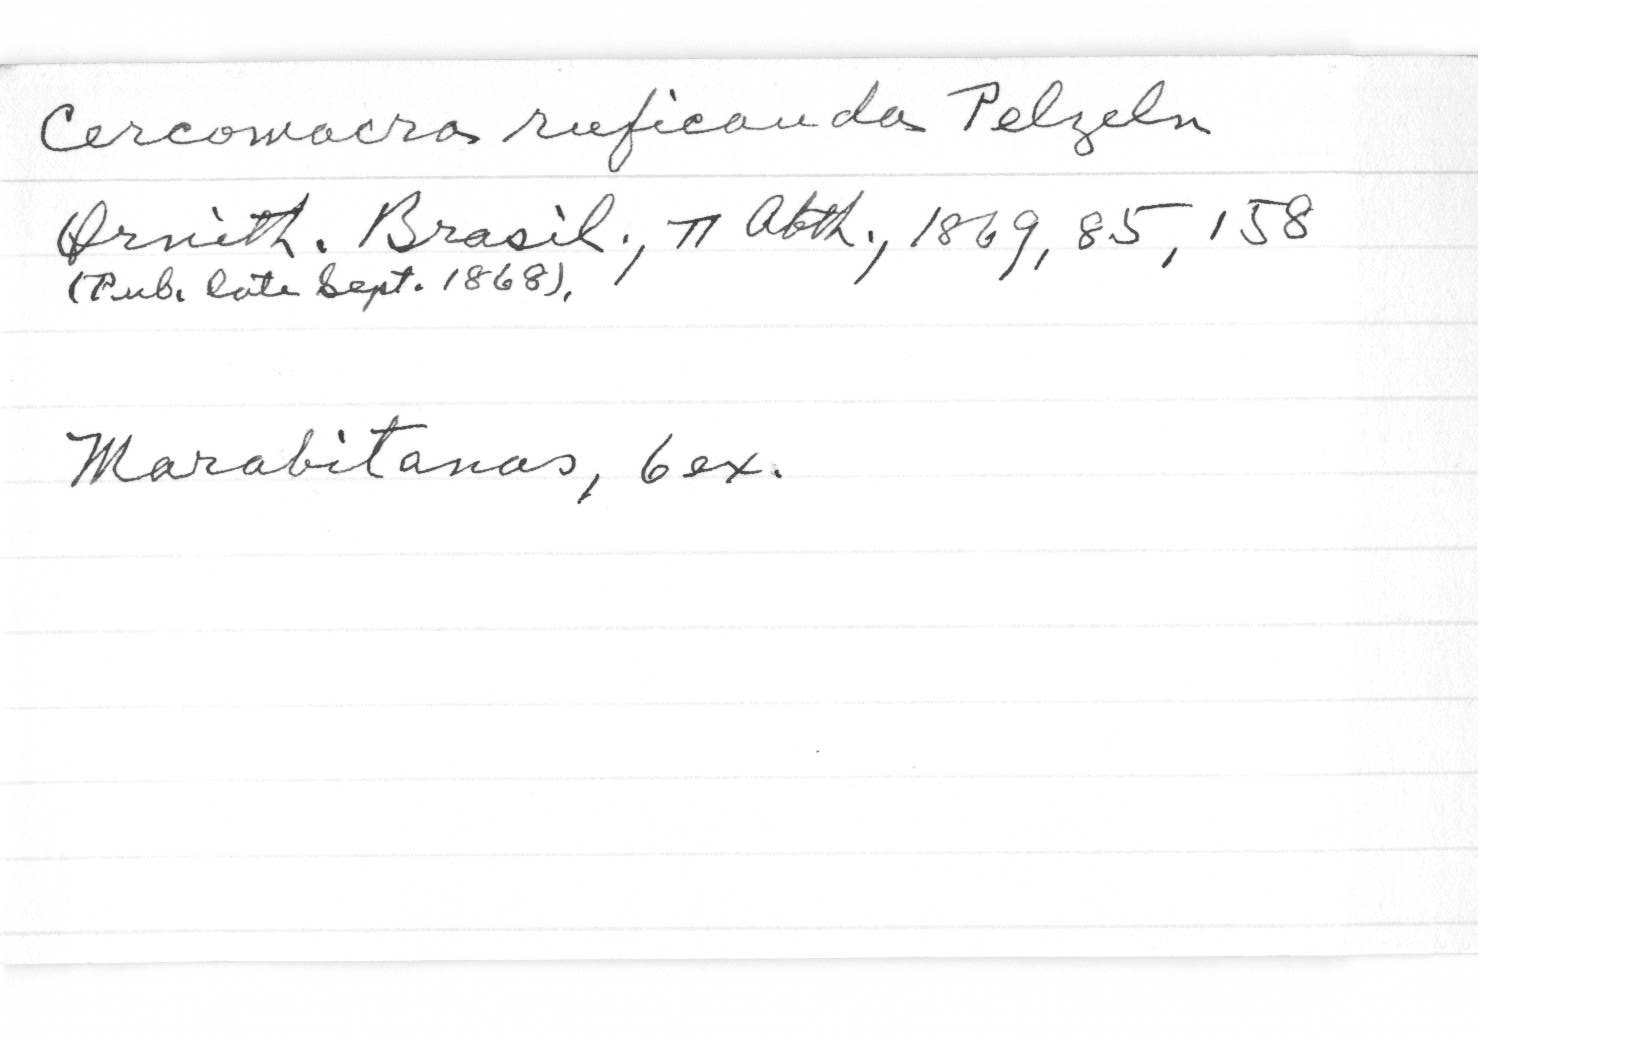 Cercomacra ruficauda Pelzeln
Ornith. Brasil., II Abth., 1869, 85, 158
(Pub. late Sept. 1868).
Marabitanas, 6 ex.